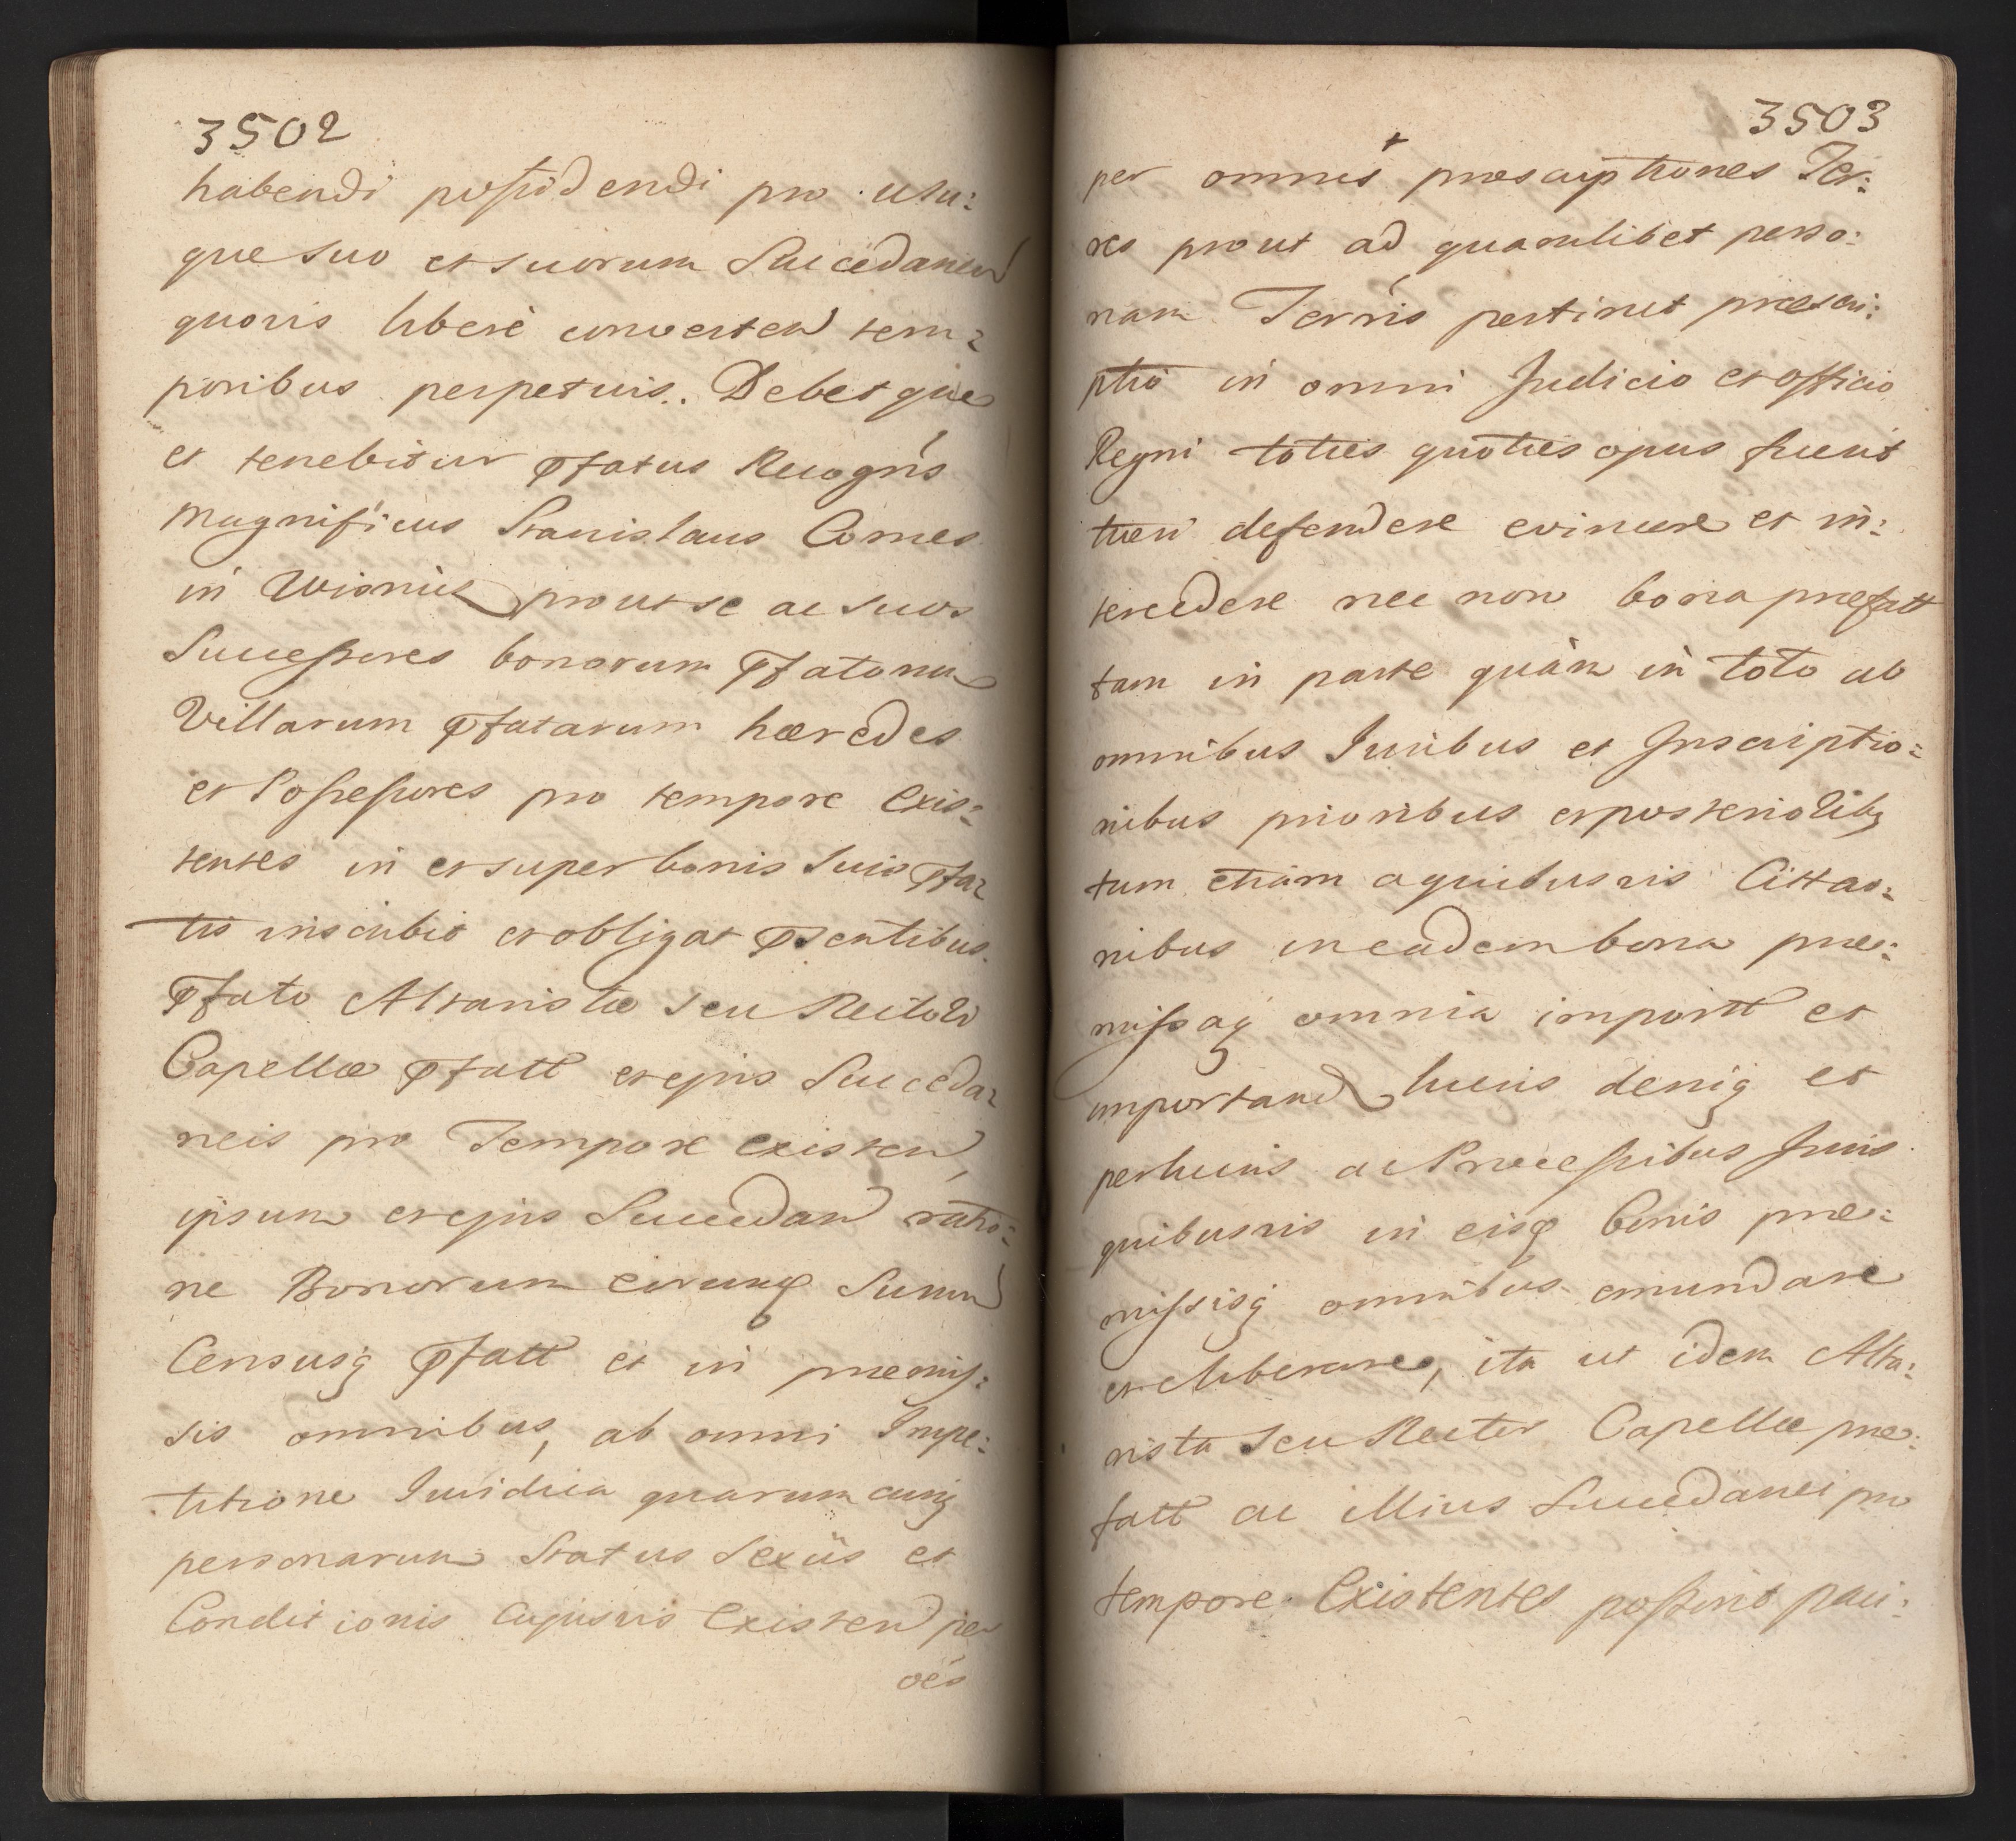 3502
habendi possidendi pro usu:
que suo et suorum Succedaneu
quovis liberè converten tem:
poribus perpetuis. Debetque
et tenebitur pfatus Recogñs
Magnificus Stanislaus Comes
in Wisnicz prout se ac suos
Successores bonorum pfatorum
Villarum pfatarum hæredes
et Possessores pro tempore exis:
tentes in et super bonis suis pfa:
tis inscribit et obligat psentibus
pfato Altaristæ seu Rectori
Capellæ pfatt et ejus Succeda:
neis pro Tempore existen,
ipsum et ejus Succedan ratio:
ne Bonorum eorumq Summ
Censusq pfatt et in præmis:
sis omnibus, ab omni Impe:
titione Juridica quarumcunq
personarum Status Sexûs et
Conditionis cujusvis Existen per
oes
3503
per omnes præscriptiones Ter:
res prout ad quamlibet perso:
nam Terris pertinet præscri:
ptio in omni Judicio et officio
Regni toties quoties opus fuerit
tueri defendere evincere et in:
tercedere nec non bona præfatt
tam in parte quàm in toto ab
omnibus Juribus et Inscriptio:
nibus prioribus et posterioribq
tum etiam a quibusvis Cittao:
nibus in eadem bona præ:
missaq omnia importt et
importand lucris deniq et
perlucris ac Processibus Juris
quibusvis in eisq bonis præ:
missisq omnibus emundare
et eliberare, ita ut idem Alta:
rista seu Rector Capellæ præ:
fatt ac illius Succedanei pro
tempore Existentes possint paci: